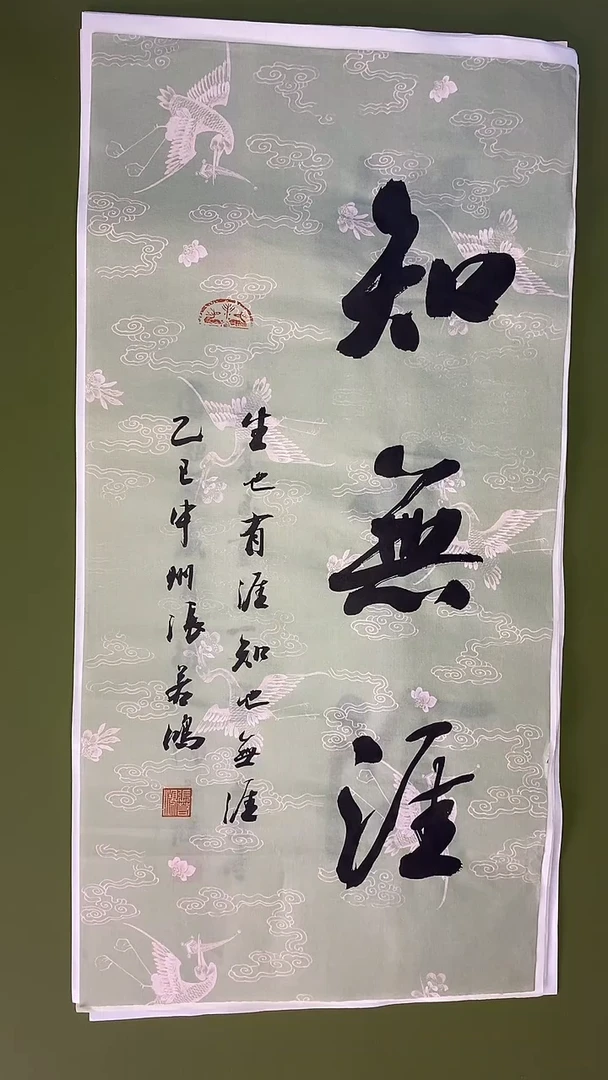 知無涯
生也有涯知也無涯
乙巳中州張若鴻